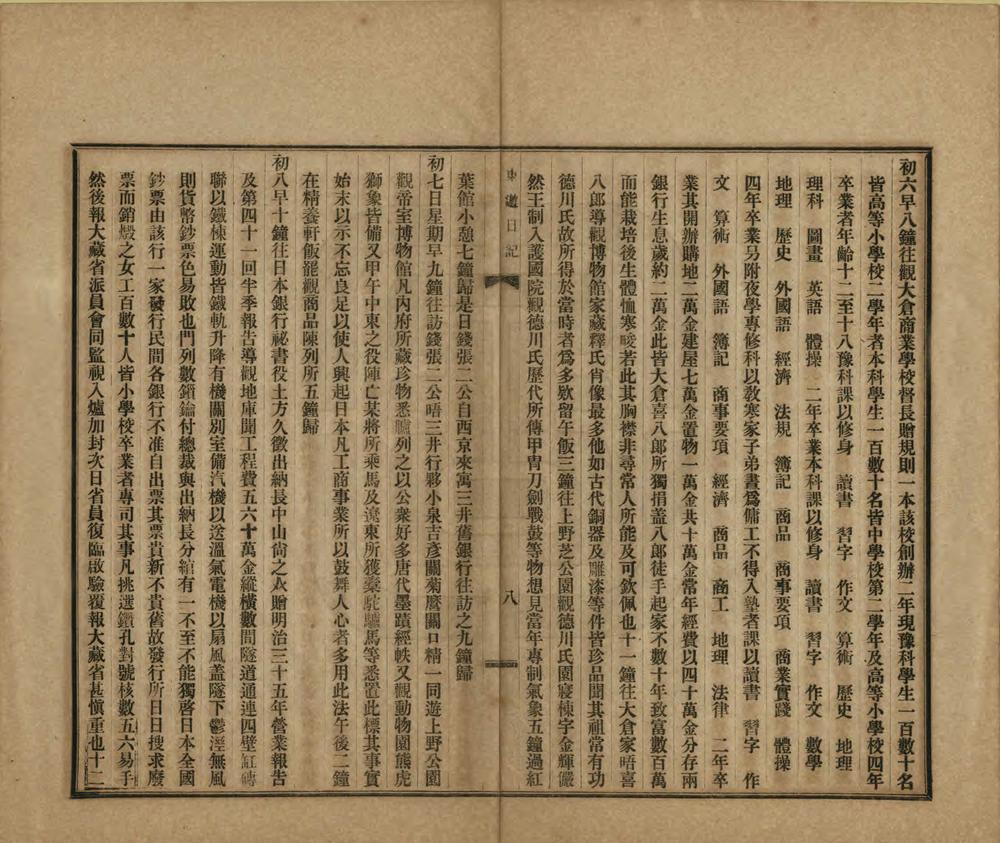 初六早八鐘往觀大倉商業學校督長贈規則一本該校創辦二年現豫科學生一百數十名
皆高等小學校二學年者本科學生一百數十名皆中學校第二學年及高等小學校四年
卒業者年齡十二至十八豫科課以修身 讀書 習字 作文 算術 歷史 地理
理科 圖畫 英語 體操 二年卒業本科課以修身 讀書 習字 作文 數學
地理 歷史 外國語 經濟 法規 簿記 商品 商事要項 商業實踐 體操
四年卒業另附夜學專修科以教寒家子弟晝爲傭工不得入塾者課以讀書 習字 作
文 算術 外國語 簿記 商事要項 經濟 商品 商工 地理 法律 二年卒
業其開辦購地二萬金建屋七萬金置物一萬金共十萬金常年經費以四十萬金分存兩
銀行生息歲約二萬金此皆大倉喜八郎所獨捐蓋八郎徒手起家不數十年致富數百萬
而能栽培後生體恤寒畯若此其胸襟非尋常人所能及可欽佩也十一鐘往大倉家晤喜
八郎導觀博物館家藏釋氏肖像最多他如古代銅器及雕漆等件皆珍品聞其祖常有功
德川氏故所得於當時者爲多欵留午飯三鐘往上野芝公園觀德川氏園寢棟宇金輝儼
然王制入護國院觀德川氏歷代所傳甲冑刀劍戰鼓等物想見當年專制氣象五鐘過紅
東遊日記 八
葉館小憩七鐘歸是日錢張二公自西京來寓三井舊銀行往訪之九鐘歸
初七日星期早九鐘往訪錢張二公晤三井行夥小泉吉彥關菊麿關口精一同遊上野公園
觀帝室博物館凡內府所藏珍物悉臚列之以公衆好多唐代墨蹟經帙又觀動物園熊虎
獅象皆備又甲午中東之役陣亡某將所乘馬及遼東所獲槖駝驢馬等悉置此標其事實
始末以示不忘良足以使人興起日本凡工商事業所以鼓舞人心者多用此法午後二鐘
在精養軒飯罷觀商品陳列所五鐘歸
初八早十鐘往日本銀行祕書役土方久徵出納長中山尙之介贈明治三十五年營業報告
及第四十一回半季報告導觀地庫聞工程費五六十萬金縱橫數間隧道通連四壁缸磚
聯以鐵棟運動皆鐵軌升降有機關別室備汽機以送溫氣電機以扇風蓋隧下鬱溼無風
則貨幣鈔票色易敗也門列數鎖鑰付總裁與出納長分綰有一不至不能獨啓日本全國
鈔票由該行一家發行民間各銀行不准自出票其票貴新不貴舊故發行所日日搜求廢
票而銷燬之女工百數十人皆小學校卒業者專司其事凡挑選鑽孔對號核數五六易手
然後報大藏省派員會同監視入爐加封次日省員復臨啟驗覆報大藏省甚愼重也十二